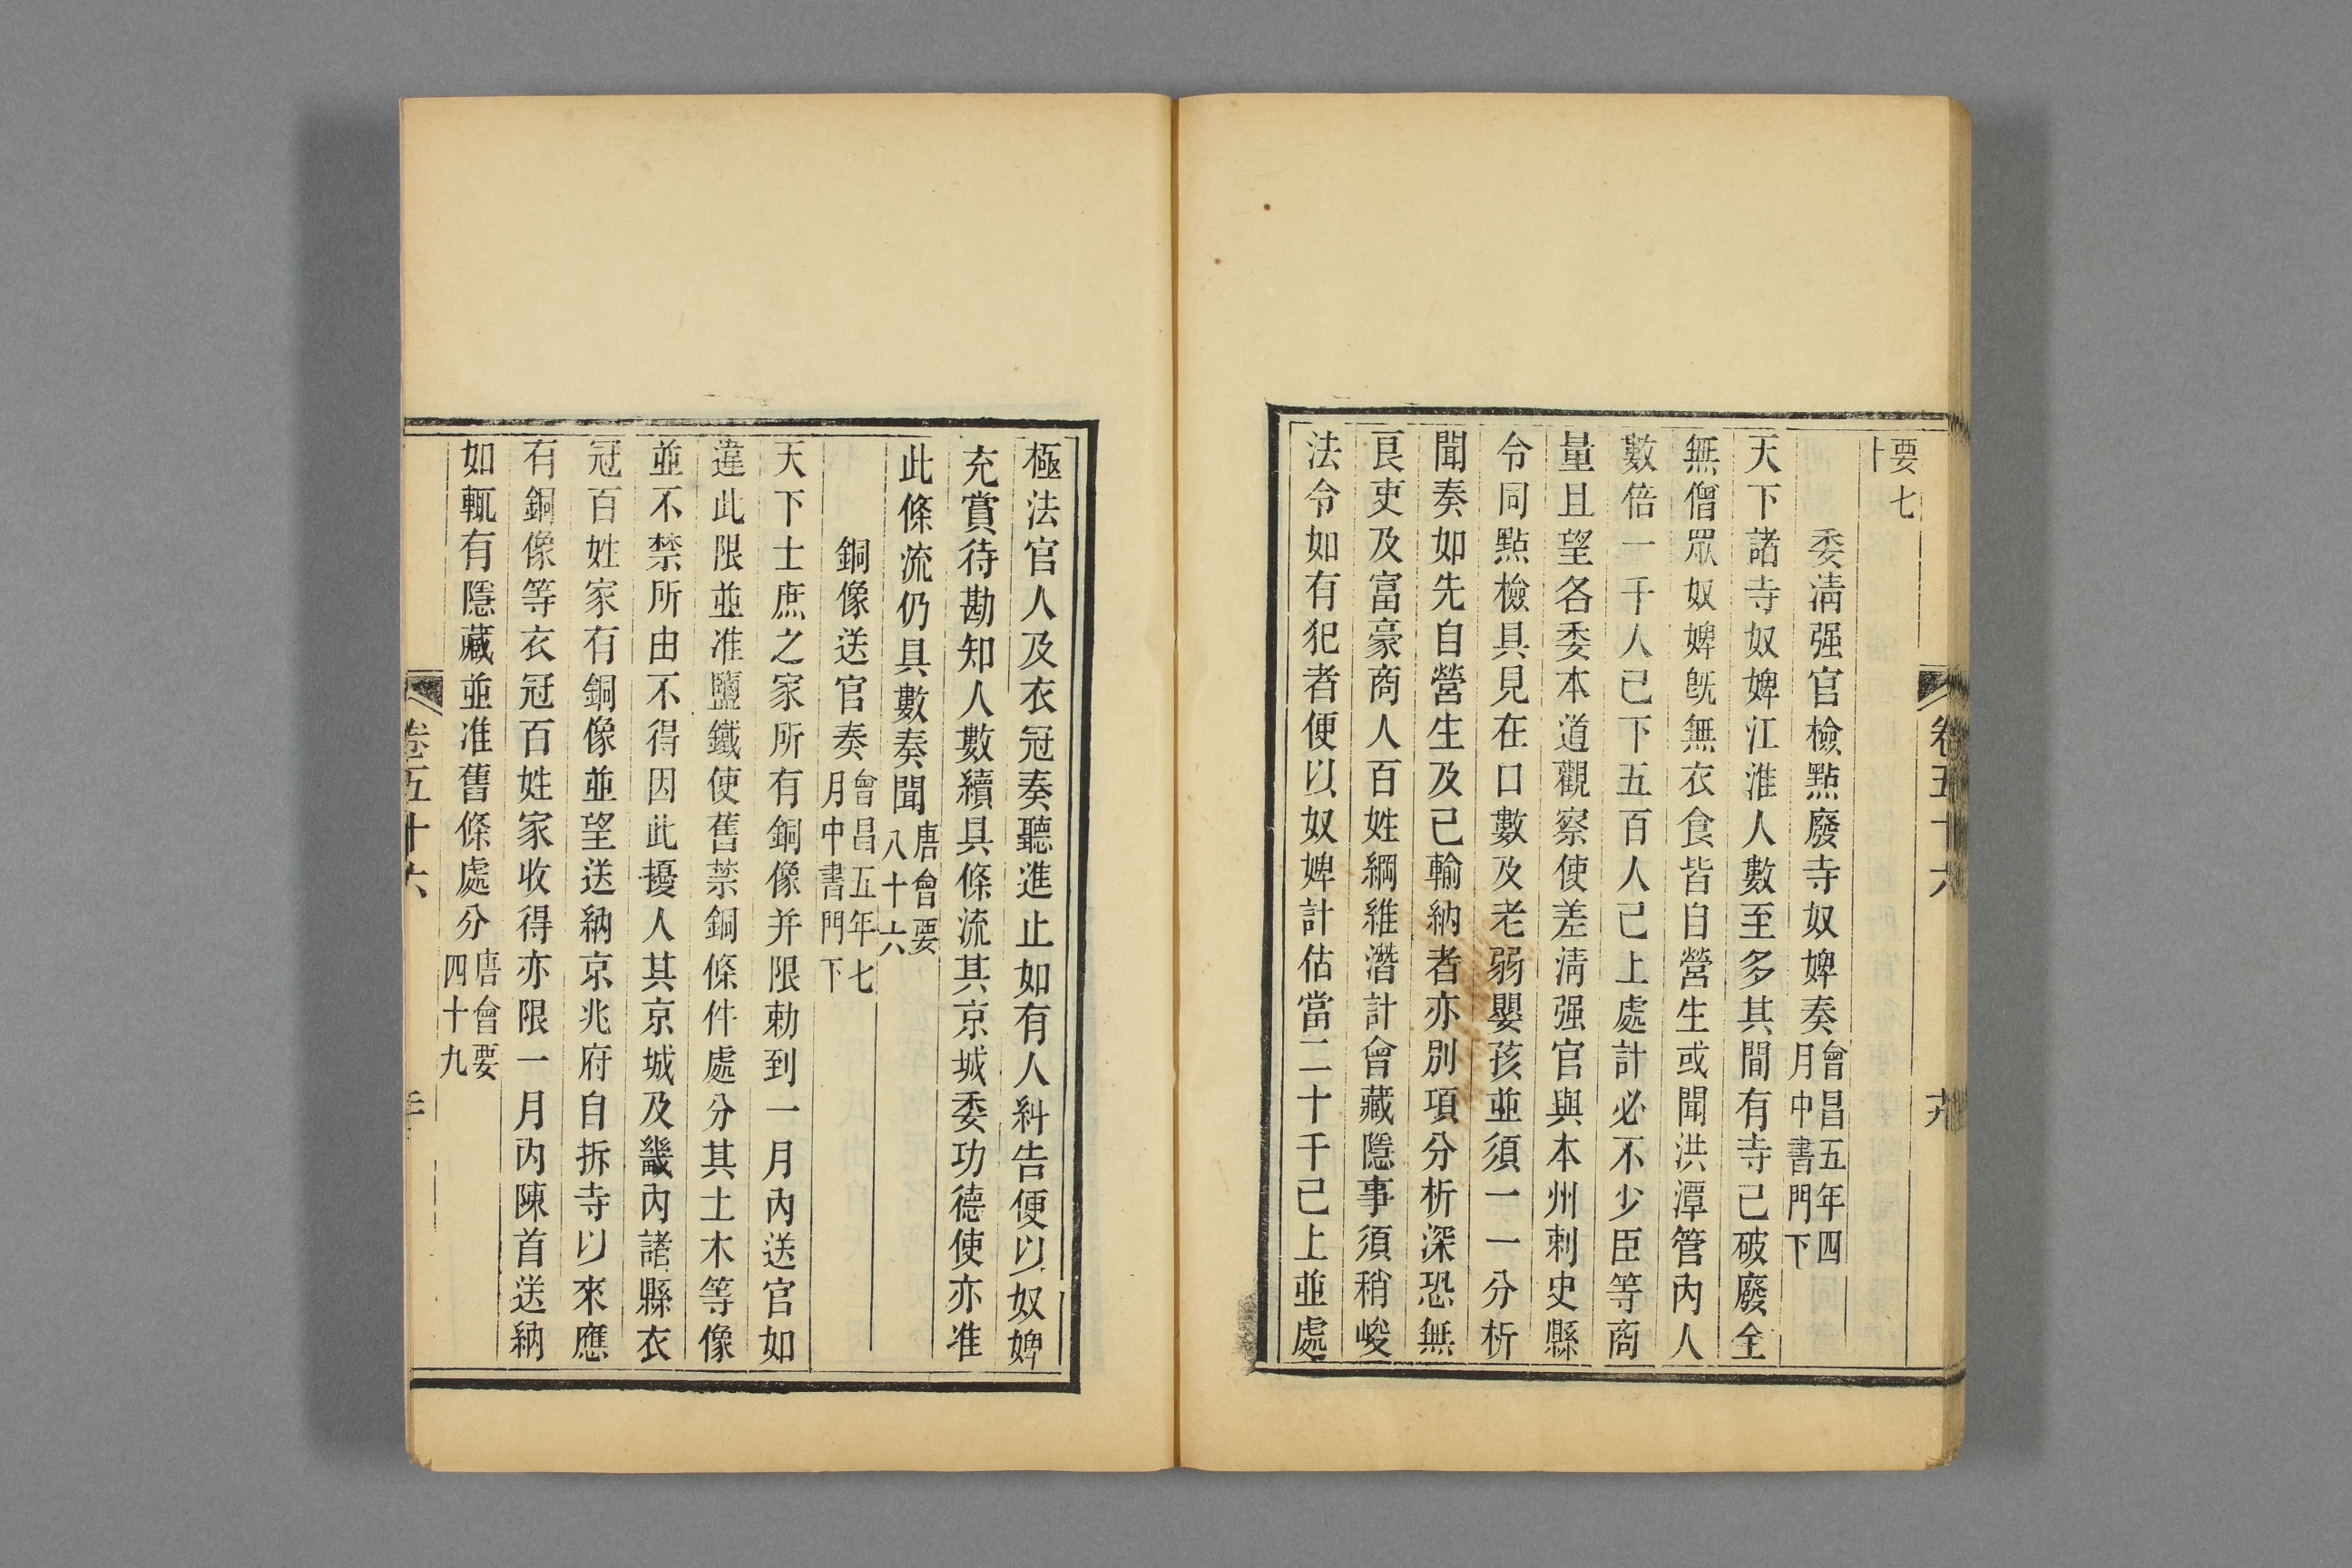 要七
十
委淸强官檢點廢寺奴婢奏會昌五年四月中書門下
天下諸寺奴婢江淮人數至多其間有寺已破廢全
無僧眾奴婢旣無衣食皆自營生或聞洪潭管內人
數倍一千人已下五百人已上處計必不少臣等商
量且望各委本道觀察使差淸强官與本州刺史縣
令同點檢具見在口數及老弱嬰孩並須一一分析
聞奏如先自營生及已輸納者亦別項分析深恐無
良吏及富豪商人百姓綱維潛計會藏隱事須稍峻
法令如有犯者便以奴婢計估當二十千已上並處
極法官人及衣冠奏聽進止如有人糾告便以奴婢
充賞待勘知人數續具條流其京城委功德使亦准
此條流仍具數奏聞唐會要八十六
銅像送官奏會昌五年七月中書門下
天下士庶之家所有銅像并限勅到一月內送官如
違此限並准鹽鐵使舊禁銅條件處分其土木等像
並不禁所由不得因此擾人其京城及畿內諸縣衣
冠百姓家有銅像並望送納京兆府自拆寺以來應
有銅像等衣冠百姓家收得亦限一月內陳首送納
如輒有隱藏並准舊條處分唐會要四十九
卷五十六